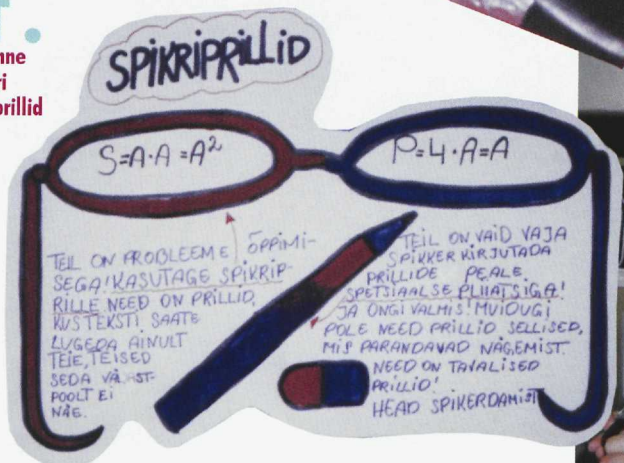 nne
ri
prillid
SPIKRIPRILLID
S=A·A=A²
P=4·A=A
TEIL ON PROBLEEME ÕPPIMI-
SEGA! KASUTAGE SPIKRIP-
RILLE NEED ON PRILLID,
KUS TEKSTI SAATE
LUGEDA AINULT
TEIE, TEISED
SEDA VÄLJAST-
POOLT EI
NÄE.
TEIL ON VAID VAJA
SPIKKER KIRJUTADA
PRILLIDE PEALE
SPETSIAALSE PLIIATSIGA!
JA ONGI VALMIS! MUIDUGI
POLE NEED PRILLID SELLISED,
MIS PARANDAVAD NÄGEMIST.
NEED ON TAVALISED
PRILLID!
HEAD SPIKERDAMIST